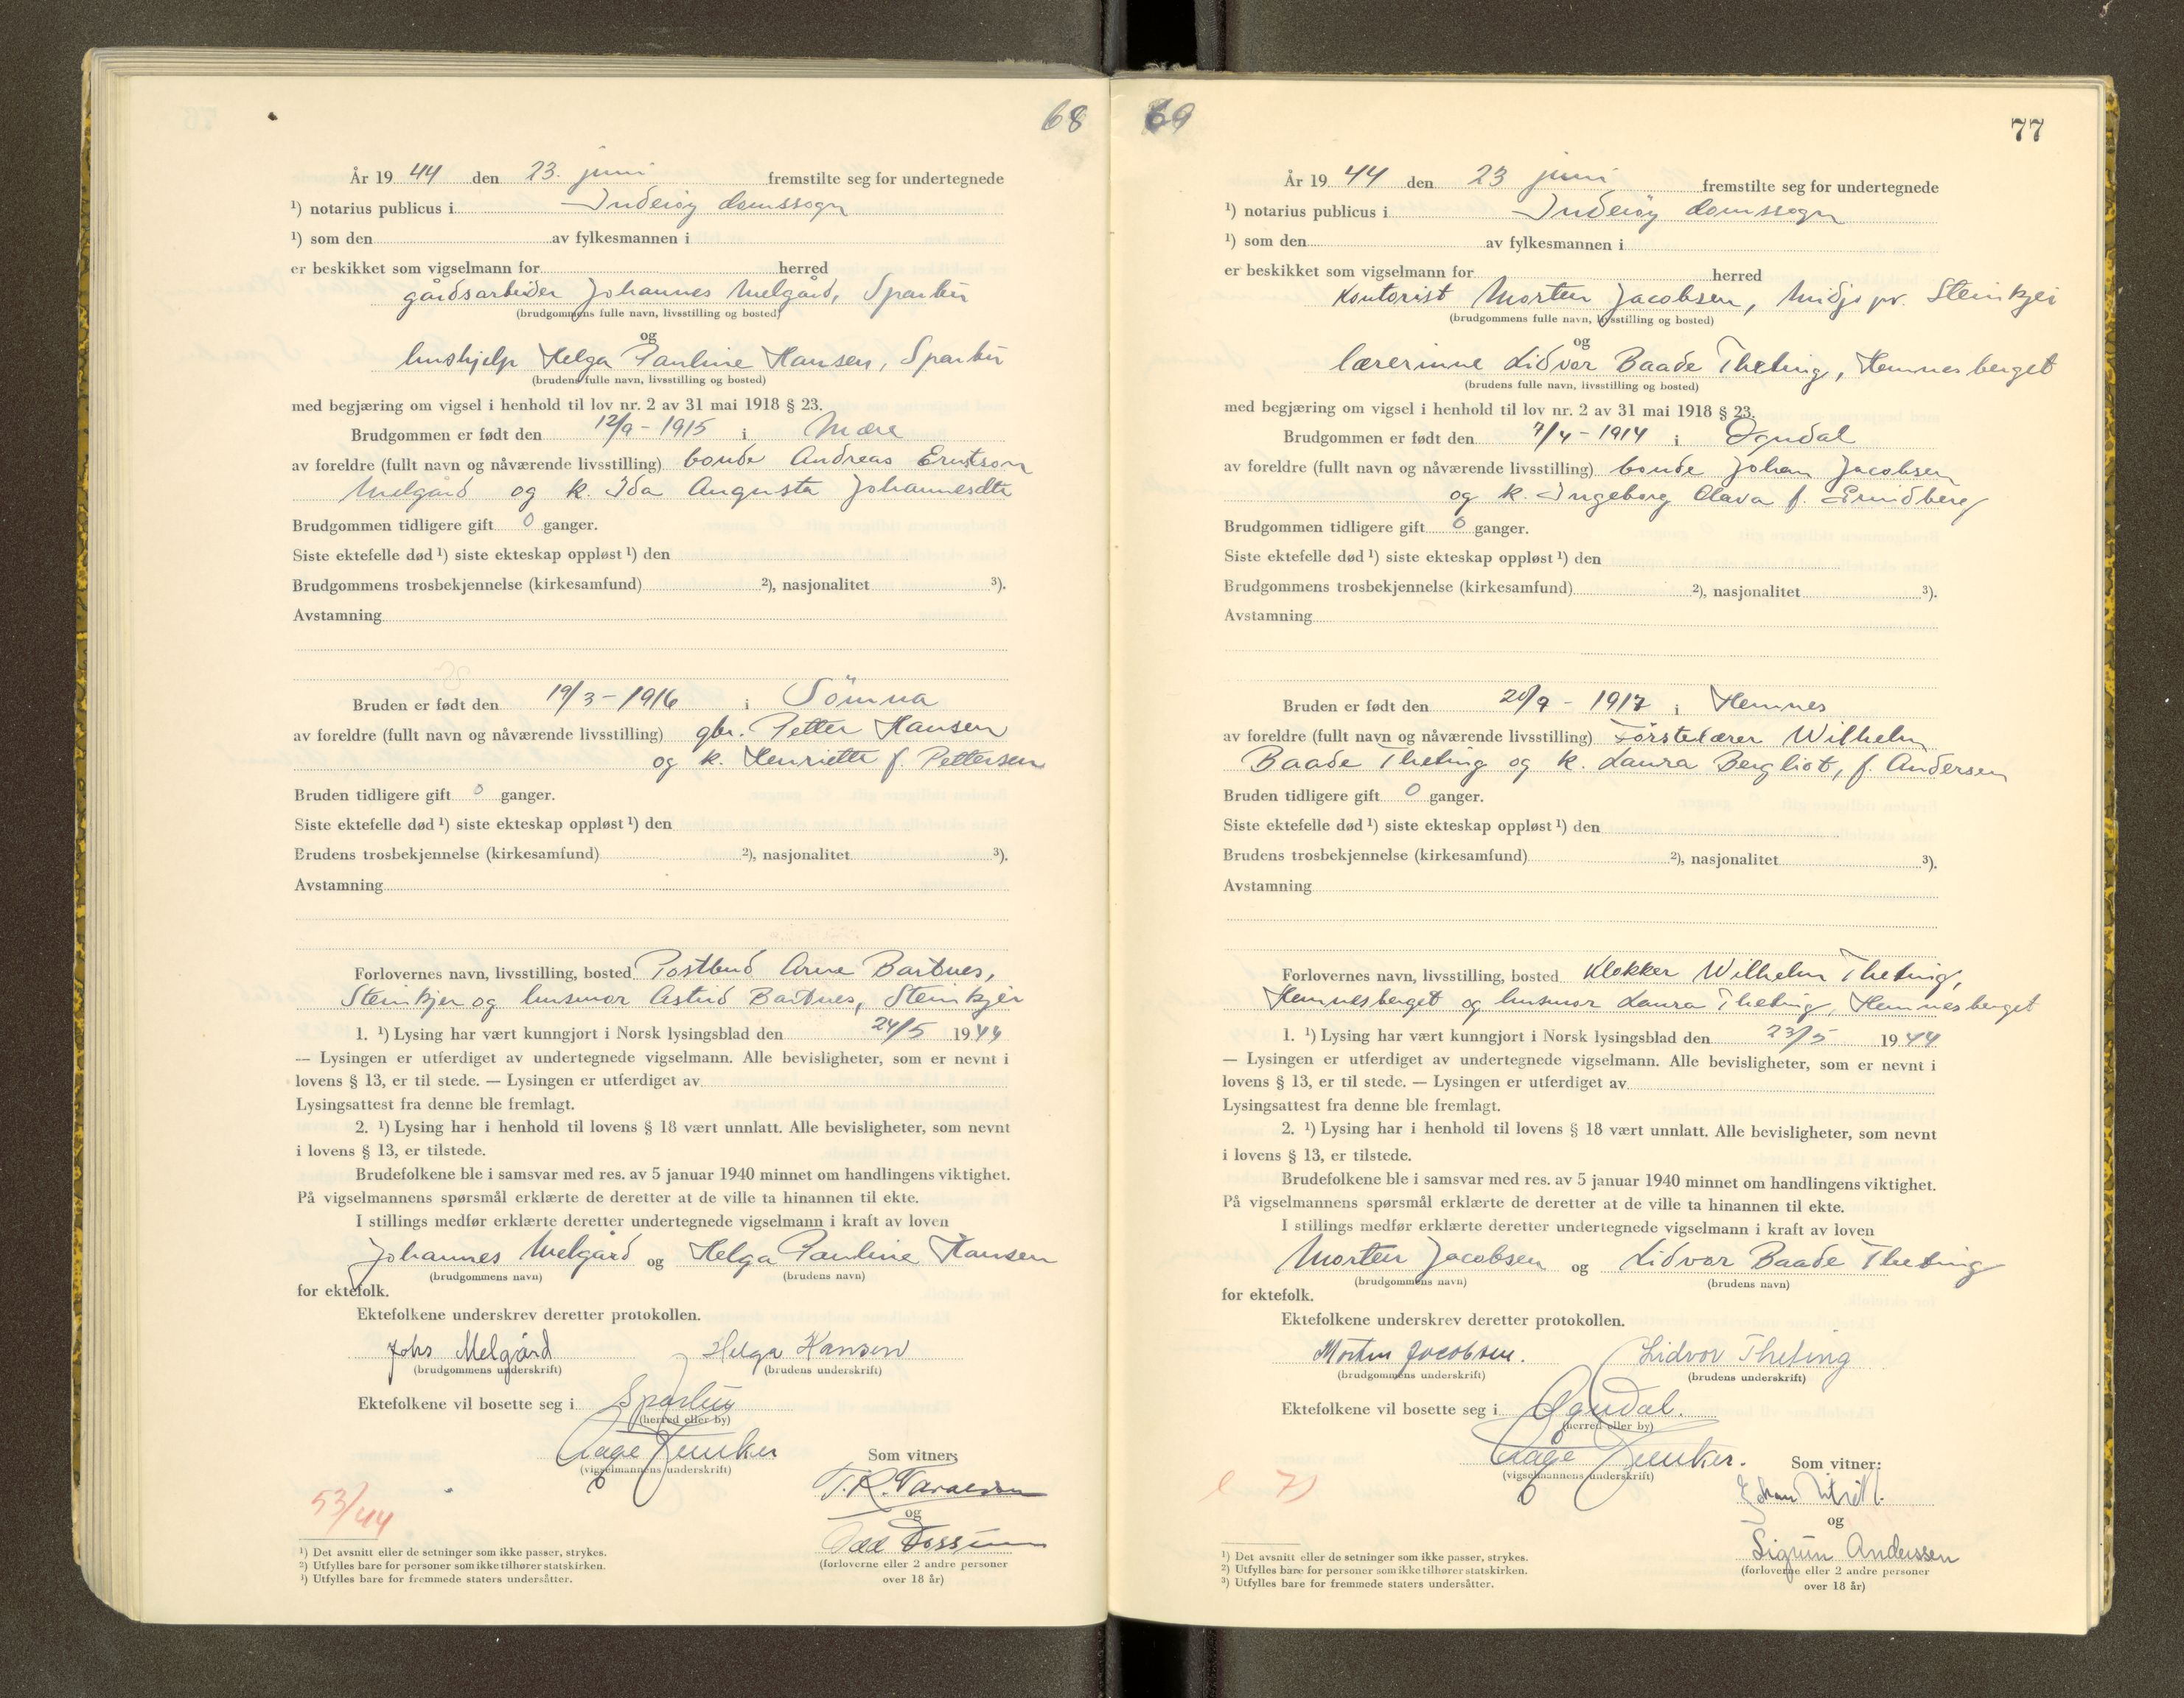 68
År 19 44 den 23. juni fremstilte seg for undertegnede
¹) notarius publicus i Inderöy domssogn
¹) som den av fylkesmannen i
er beskikket som vigselmann for herred
gårdsarbeider Johannes Melgård, Sparbu
(brudgommens fulle navn, livsstilling og bosted)
og
hushjelp Helga Pauline Hansen, Sparbu
(brudens fulle navn, livsstilling og bosted)
med begjæring om vigsel i henhold til lov nr. 2 av 31 mai 1918 § 23.
Brudgommen er født den 12/9 - 1915 i Mære
av foreldre (fullt navn og nåværende livsstilling) bonde Andreas Erntson
Melgård og k. Ida Augusta Johannesdtr
Brudgommen tidligere gift 0 ganger.
Siste ektefelle død ¹) siste ekteskap oppløst ¹) den
Brudgommens trosbekjennelse (kirkesamfund) ²), nasjonalitet ³).
Avstamning
Bruden er født den 19/3 - 1916 i Sömna
av foreldre (fullt navn og nåværende livsstilling) gbr. Petter Hansen
og k. Henriette f. Pettersen
Bruden tidligere gift 0 ganger.
Siste ektefelle død ¹) siste ekteskap oppløst ¹) den
Brudens trosbekjennelse (kirkesamfund) ²), nasjonalitet ³).
Avstamning
Forlovernes navn, livsstilling, bosted Postbud Arne Bartnes,
Steinkjer og husmor Astrid Bartnes, Steinkjer
1. ¹) Lysing har vært kunngjort i Norsk lysingsblad den 24/5 1944
— Lysingen er utferdiget av undertegnede vigselmann. Alle bevisligheter, som er nevnt i
lovens § 13, er til stede. — Lysingen er utferdiget av
Lysingsattest fra denne ble fremlagt.
2. ¹) Lysing har i henhold til lovens § 18 vært unnlatt. Alle bevisligheter, som nevnt
i lovens § 13, er tilstede.
Brudefolkene ble i samsvar med res. av 5 januar 1940 minnet om handlingens viktighet.
På vigselmannens spørsmål erklærte de deretter at de ville ta hinannen til ekte.
I stillings medfør erklærte deretter undertegnede vigselmann i kraft av loven
Johannes Melgård og Helga Pauline Hansen
(brudgommens navn) (brudens navn)
for ektefolk.
Ektefolkene underskrev deretter protokollen.
Johs Melgård Helga Hansen
(brudgommens underskrift) (brudens underskrift)
Ektefolkene vil bosette seg i Sparbu
(herred eller by)
Aage Junker
(vigselmannens underskrift)
Som vitner:
T.R.
og
Odd Fossum
(forloverne eller 2 andre personer
over 18 år)
53/44
¹) Det avsnitt eller de setninger som ikke passer, strykes.
²) Utfylles bare for personer som ikke tilhører statskirken.
³) Utfylles bare for fremmede staters undersåtter.
69
77
År 19 44 den 23 juni fremstilte seg for undertegnede
¹) notarius publicus i Inderöy domssogn
¹) som den av fylkesmannen i
er beskikket som vigselmann for herred
Kontorist Morten Jacobsen, Midjo pr. Steinkjer
(brudgommens fulle navn, livsstilling og bosted)
og
lærerinne Lidvor Baade Theting, Hemnesberget
(brudens fulle navn, livsstilling og bosted)
med begjæring om vigsel i henhold til lov nr. 2 av 31 mai 1918 § 23.
Brudgommen er født den 7/4 - 1914 i Ogndal
av foreldre (fullt navn og nåværende livsstilling) bonde Johan Jacobsen
og k. Ingeborg Olava f.
Brudgommen tidligere gift 0 ganger.
Siste ektefelle død ¹) siste ekteskap oppløst ¹) den
Brudgommens trosbekjennelse (kirkesamfund) ²), nasjonalitet ³).
Avstamning
Bruden er født den 20/9 - 1917 i Hemnes
av foreldre (fullt navn og nåværende livsstilling) Förstelærer Wilhelm
Baade Theting og k. Laura Bergliot, f. Andersen
Bruden tidligere gift 0 ganger.
Siste ektefelle død ¹) siste ekteskap oppløst ¹) den
Brudens trosbekjennelse (kirkesamfund) ²), nasjonalitet ³).
Avstamning
Forlovernes navn, livsstilling, bosted Klokker Wilhelm Theting,
Hemnesberget og husmor Laura Theting, Hemnesberget
1. ¹) Lysing har vært kunngjort i Norsk lysingsblad den 23/5 1944
— Lysingen er utferdiget av undertegnede vigselmann. Alle bevisligheter, som er nevnt i
lovens § 13, er til stede. — Lysingen er utferdiget av
Lysingsattest fra denne ble fremlagt.
2. ¹) Lysing har i henhold til lovens § 18 vært unnlatt. Alle bevisligheter, som nevnt
i lovens § 13, er tilstede.
Brudefolkene ble i samsvar med res. av 5 januar 1940 minnet om handlingens viktighet.
På vigselmannens spørsmål erklærte de deretter at de ville ta hinannen til ekte.
I stillings medfør erklærte deretter undertegnede vigselmann i kraft av loven
Morten Jacobsen og Lidvor Baade Theting
(brudgommens navn) (brudens navn)
for ektefolk.
Ektefolkene underskrev deretter protokollen.
Morten Jacobsen. Lidvor Theting
(brudgommens underskrift) (brudens underskrift)
Ektefolkene vil bosette seg i Ogndal.
(herred eller by)
Aage Junker.
(vigselmannens underskrift)
Som vitner:
Johan
og
Sigrun Anderssen
(forloverne eller 2 andre personer
over 18 år)
¹) Det avsnitt eller de setninger som ikke passer, strykes.
²) Utfylles bare for personer som ikke tilhører statskirken.
³) Utfylles bare for fremmede staters undersåtter.